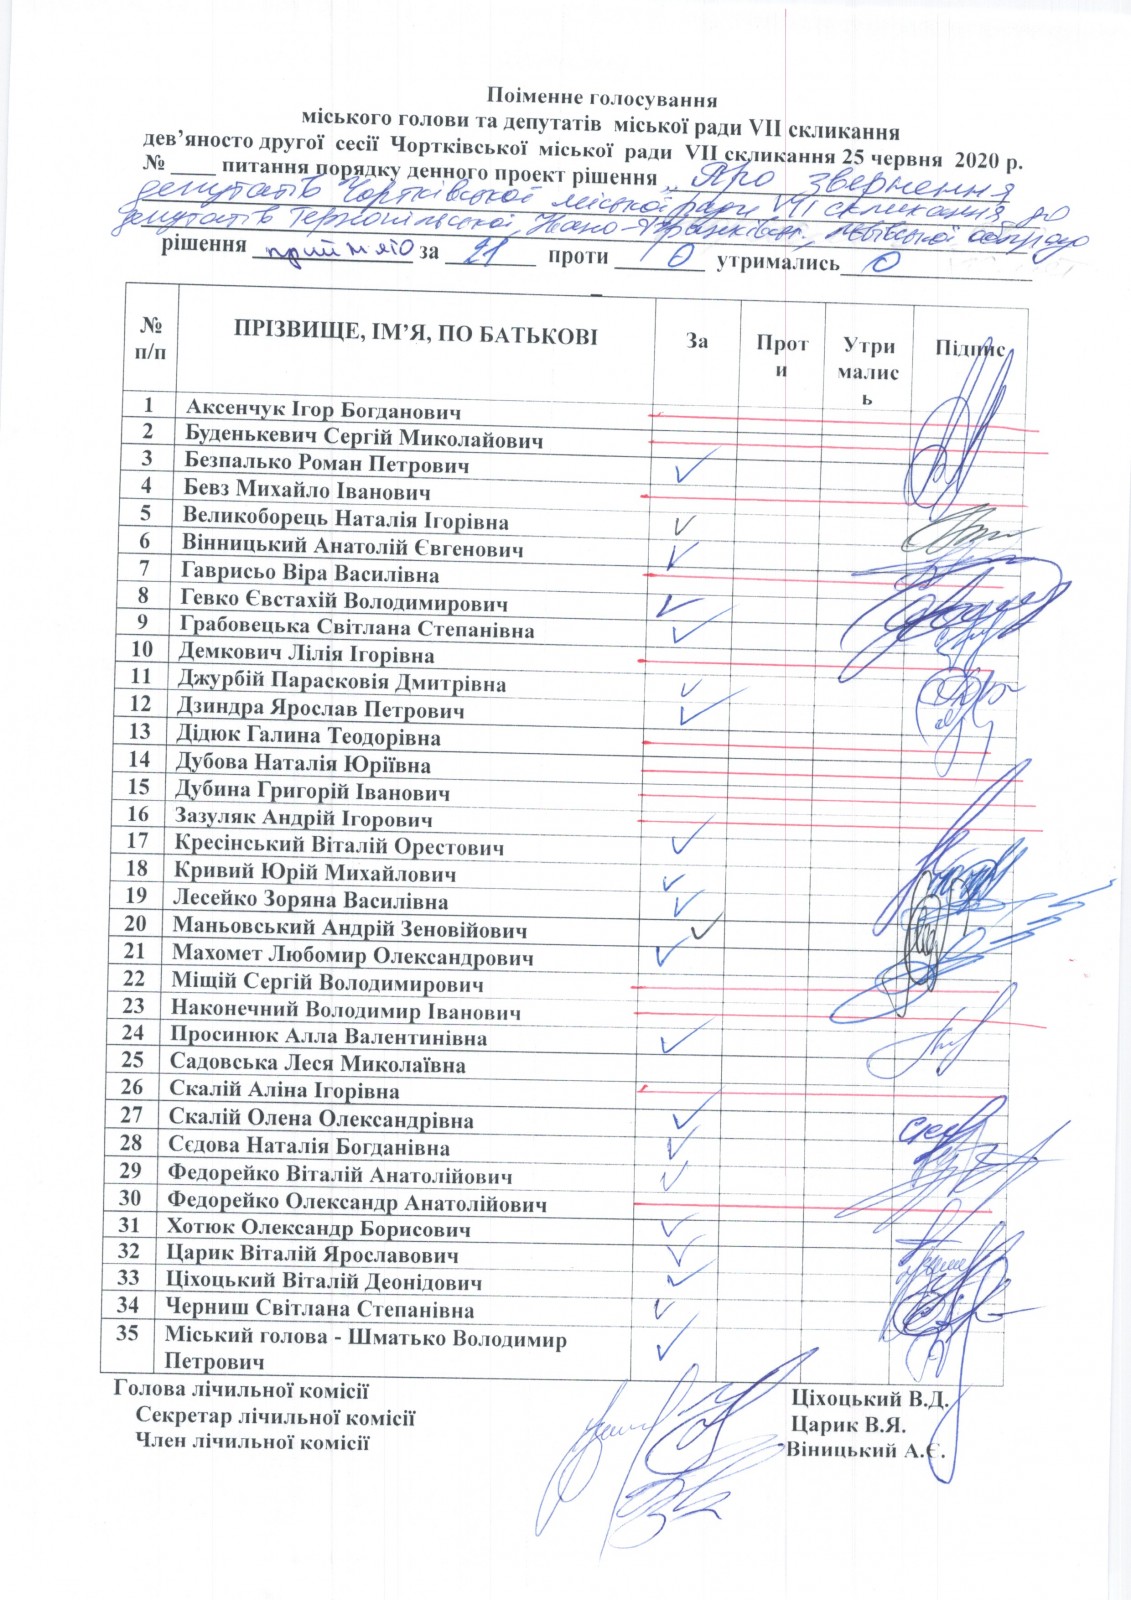 Поіменне голосування
міського голови та депутатів міської ради VII скликання
дев’яносто другої сесії Чортківської міської ради VII скликання 25 червня 2020 р.
№ ____ питання порядку денного проект рішення Про звернення
депутатів Чортківської міської ради VII скликання до
депутатів Тернопільської, Івано-Франківської, Львівської
рішення прийнято за 21 проти 0 утримались 0
№ п/п ПРІЗВИЩЕ, ІМ’Я, ПО БАТЬКОВІ За Проти Утримались Підпис
1 Аксенчук Ігор Богданович
2 Буденькевич Сергій Миколайович
3 Безпалько Роман Петрович ✓
4 Бевз Михайло Іванович
5 Великоборець Наталія Ігорівна ✓
6 Вінницький Анатолій Євгенович ✓
7 Гаврисьо Віра Василівна
8 Гевко Євстахій Володимирович ✓
9 Грабовецька Світлана Степанівна ✓
10 Демкович Лілія Ігорівна
11 Джурбій Парасковія Дмитрівна ✓
12 Дзиндра Ярослав Петрович ✓
13 Дідюк Галина Теодорівна
14 Дубова Наталія Юріївна
15 Дубина Григорій Іванович
16 Зазуляк Андрій Ігорович
17 Кресінський Віталій Орестович ✓
18 Кривий Юрій Михайлович ✓
19 Лесейко Зоряна Василівна ✓
20 Маньовський Андрій Зеновійович ✓
21 Махомет Любомир Олександрович ✓
22 Міщій Сергій Володимирович
23 Наконечний Володимир Іванович
24 Просинюк Алла Валентинівна ✓
25 Садовська Леся Миколаївна
26 Скалій Аліна Ігорівна
27 Скалій Олена Олександрівна ✓
28 Сєдова Наталія Богданівна ✓
29 Федорейко Віталій Анатолійович ✓
30 Федорейко Олександр Анатолійович
31 Хотюк Олександр Борисович ✓
32 Царик Віталій Ярославович ✓
33 Ціхоцький Віталій Деонідович ✓
34 Черниш Світлана Степанівна ✓
35 Міський голова - Шматько Володимир ✓
Петрович
Голова лічильної комісії Ціхоцький В.Д.
Секретар лічильної комісії Царик В.Я.
Член лічильної комісії Віницький А.Є.